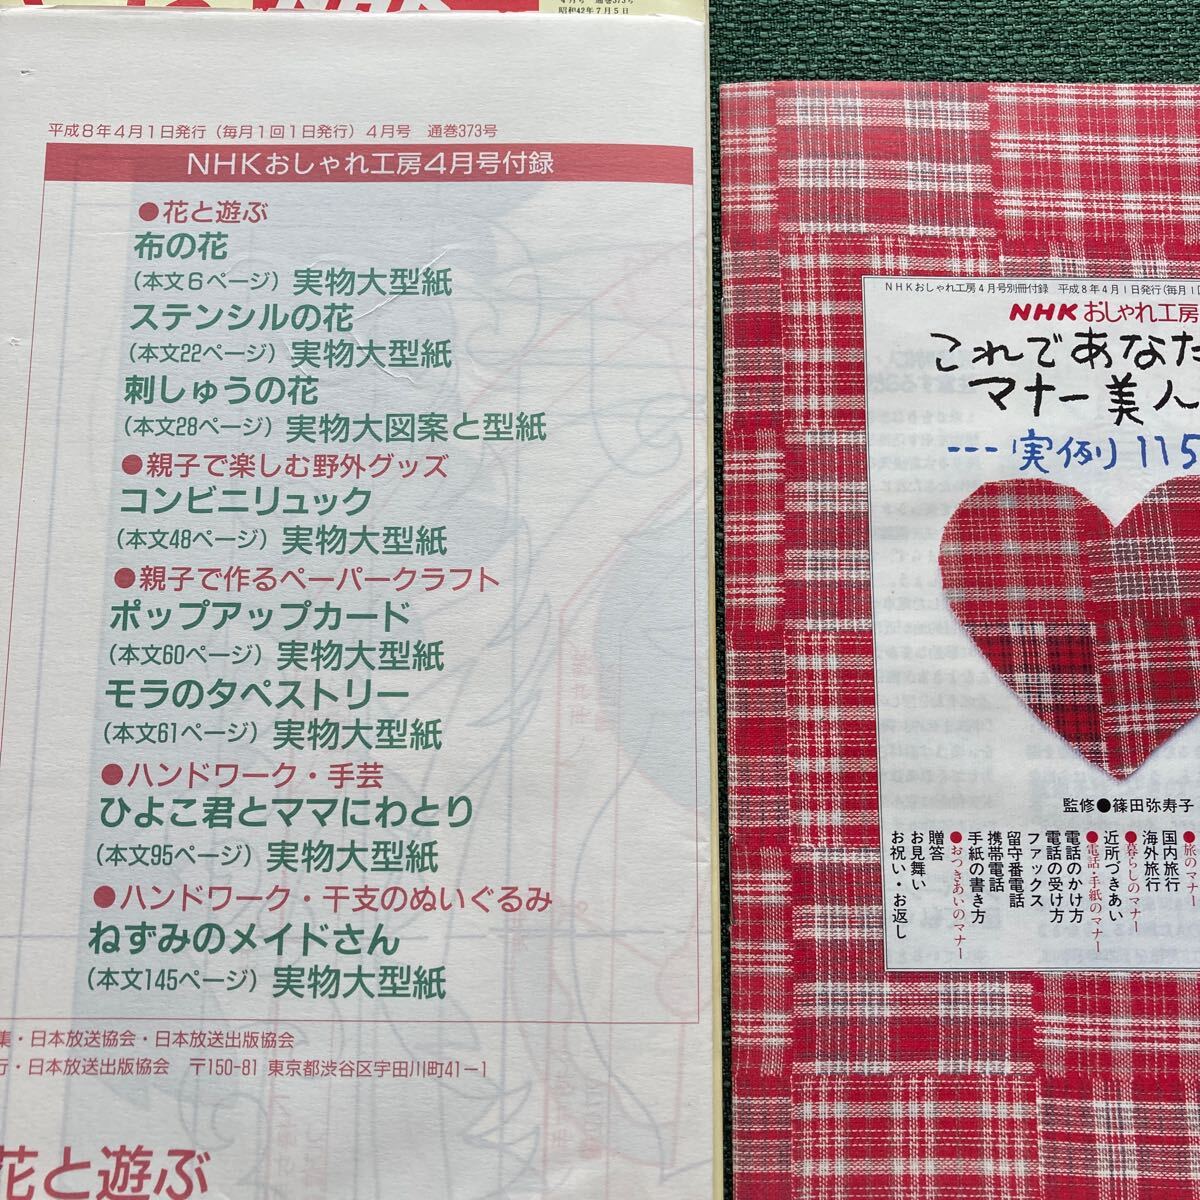 4月号 通巻373号
昭和42年7月5日
平成8年4月1日発行（毎月1回1日発行）4月号 通巻373号
NHKおしゃれ工房4月号付録
●花と遊ぶ
布の花
（本文6ページ）実物大型紙
ステンシルの花
（本文22ページ）実物大型紙
刺しゅうの花
（本文28ページ）実物大図案と型紙
●親子で楽しむ野外グッズ
コンビニリュック
（本文48ページ）実物大型紙
●親子で作るペーパークラフト
ポップアップカード
（本文60ページ）実物大型紙
モラのタペストリー
（本文61ページ）実物大型紙
●ハンドワーク・手芸
ひよこ君とママにわとり
（本文95ページ）実物大型紙
●ハンドワーク・干支のぬいぐるみ
ねずみのメイドさん
（本文145ページ）実物大型紙
集・日本放送協会・日本放送出版協会
行・日本放送出版協会 〒150-81 東京都渋谷区宇田川町41-1
花と遊ぶ
NHKおしゃれ工房4月号別冊付録 平成8年4月1日発行(毎月1
NHKおしゃれ工房
これであなた
マナー美人
---実例115
監修●篠田弥寿子
●旅のマナー
国内旅行
海外旅行
●暮らしのマナー
近所づきあい
●電話・手紙のマナー
電話のかけ方
電話の受け方
ファックス
留守番電話
携帯電話
手紙の書き方
●おつきあいのマナー
贈答
お見舞い
お祝い・お返し